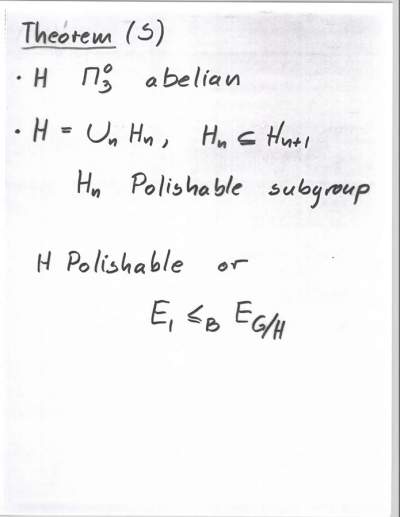 Theorem (S)
· H Π⁰₃ abelian
· H = ∪ₙ Hₙ, Hₙ ⊆ Hₙ₊₁
Hₙ Polishable subgroup
H Polishable or
E₁ ≤_B E_{G/H}